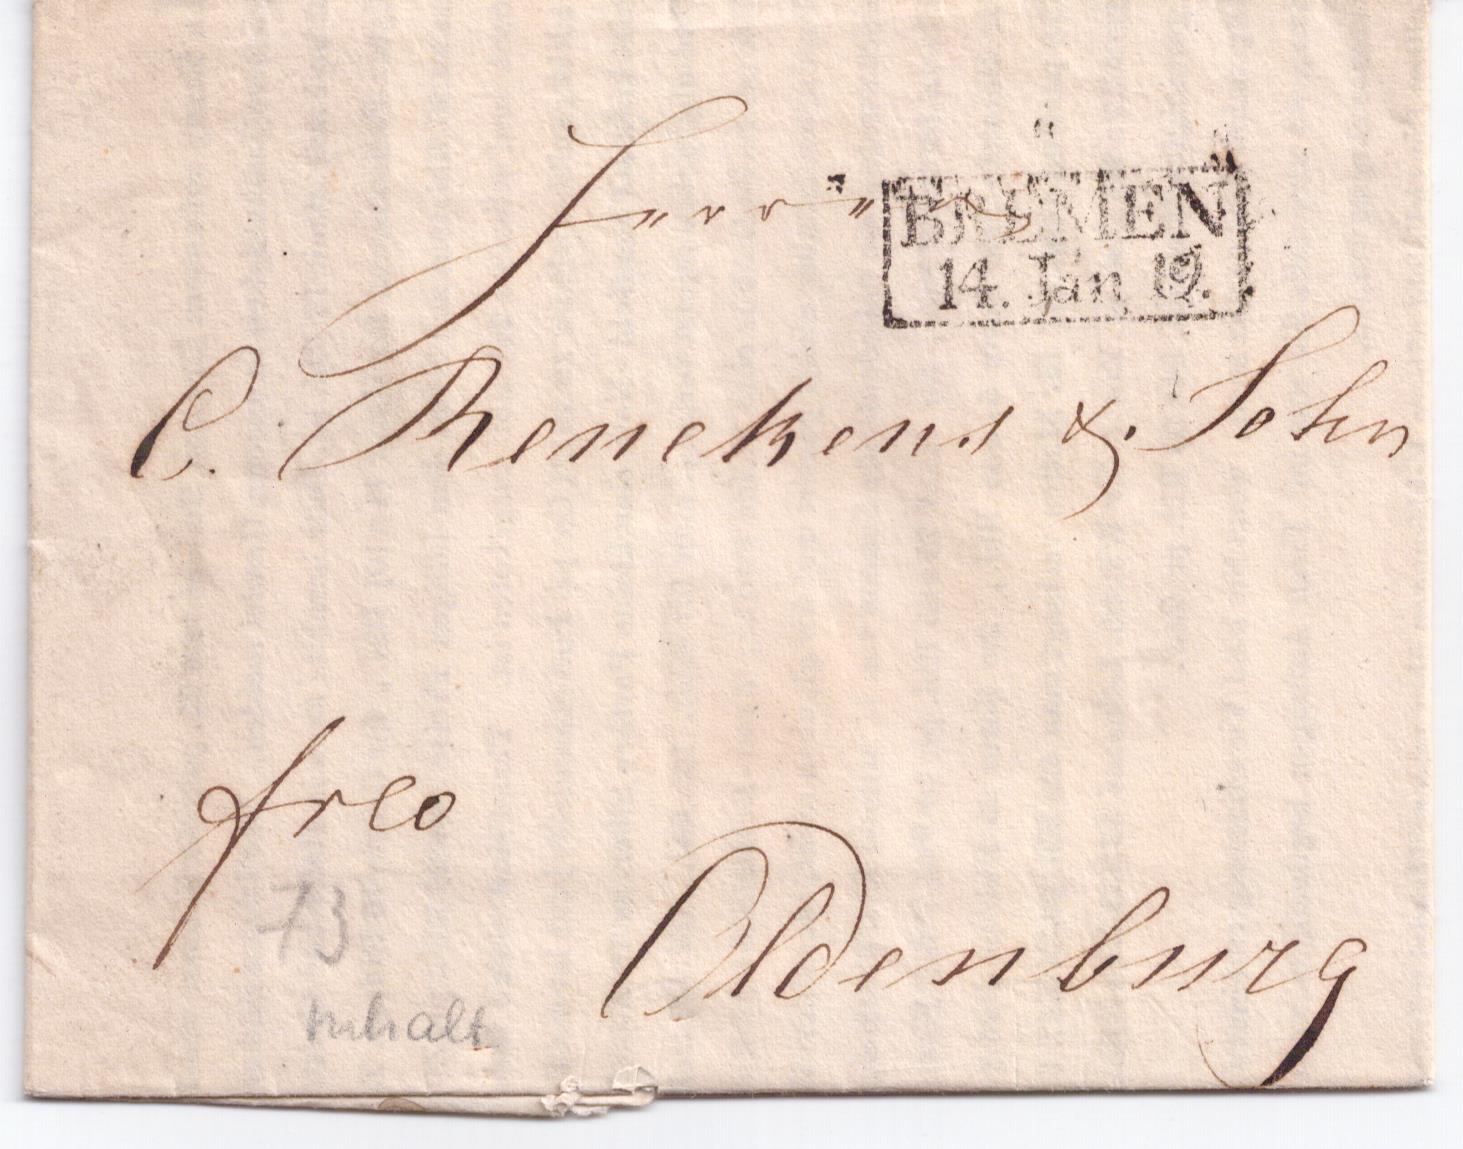 Herren
BREMEN
14. Jan 19.
C. Renekens & Sohn
frco
Oldenburg
73
Inhalt